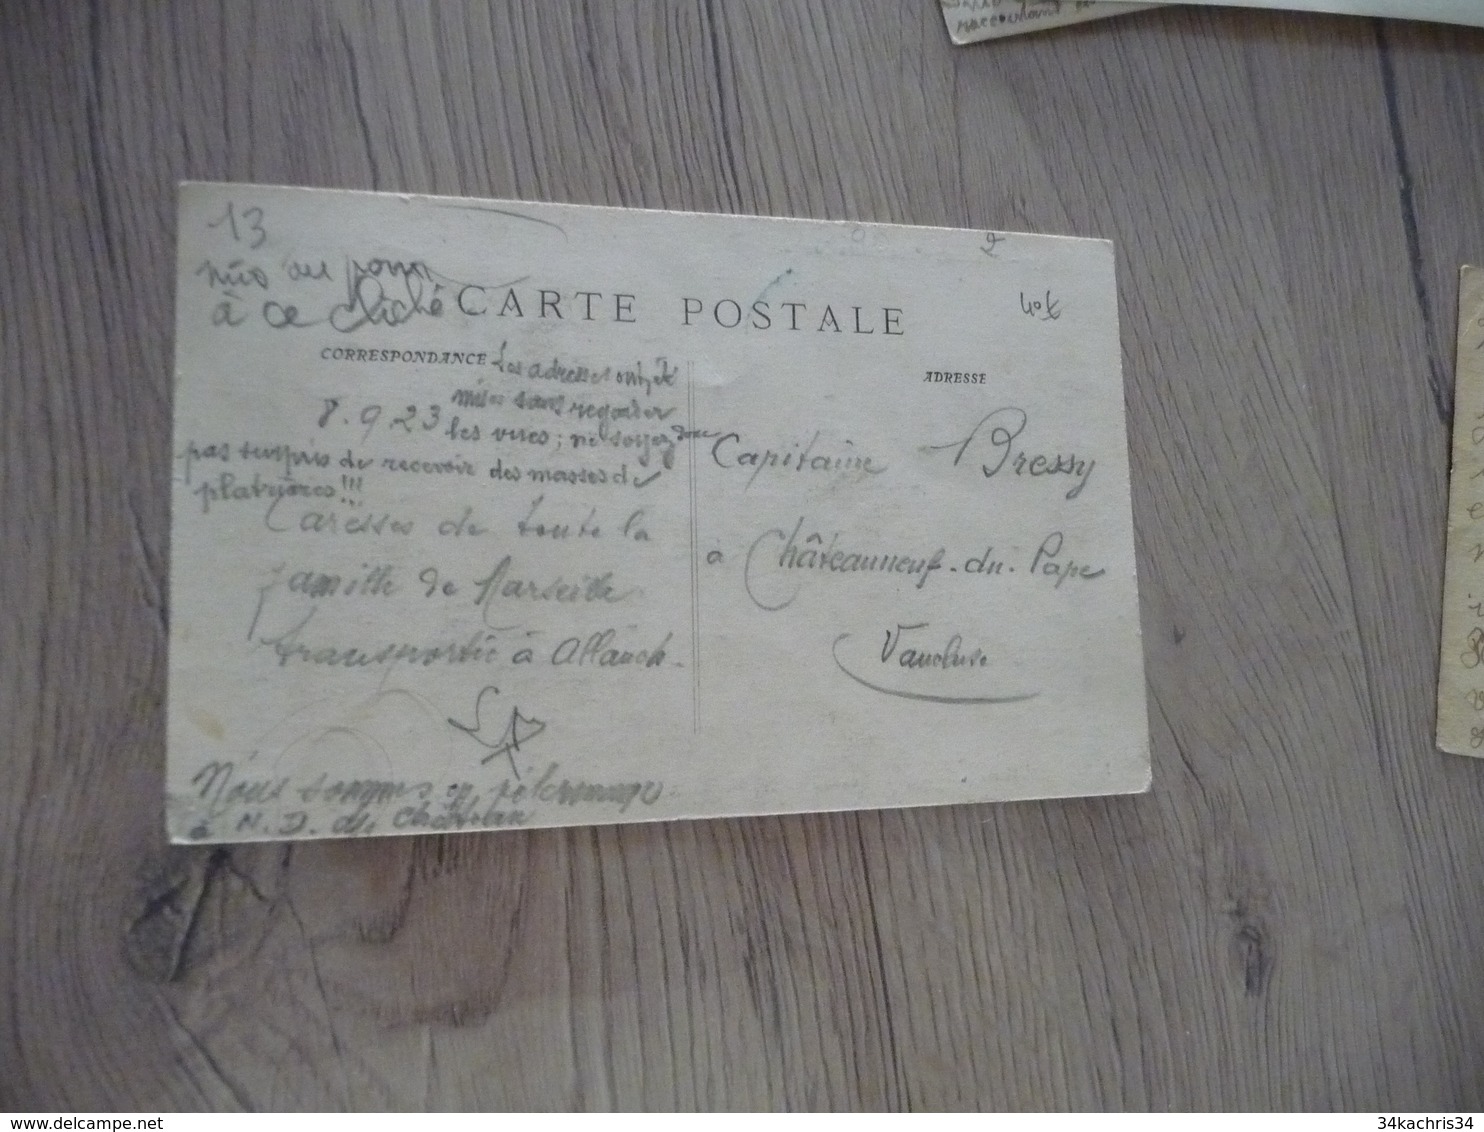 13
à ce cliché
CARTE POSTALE
40€
CORRESPONDANCE
ADRESSE
Les adresses ont été
mises sans regarder
8.9.23 les vues; ne soyez donc
pas surpris de recevoir des masses de
platrières!!!
Caresses de toute la
famille de Marseille
transportée à Allauch.
Nous sommes en pélerinage
à N. D. du Château
Capitaine Bressy
à Châteauneuf-du-Pape
Vaucluse
delcampe.net
34kachris34